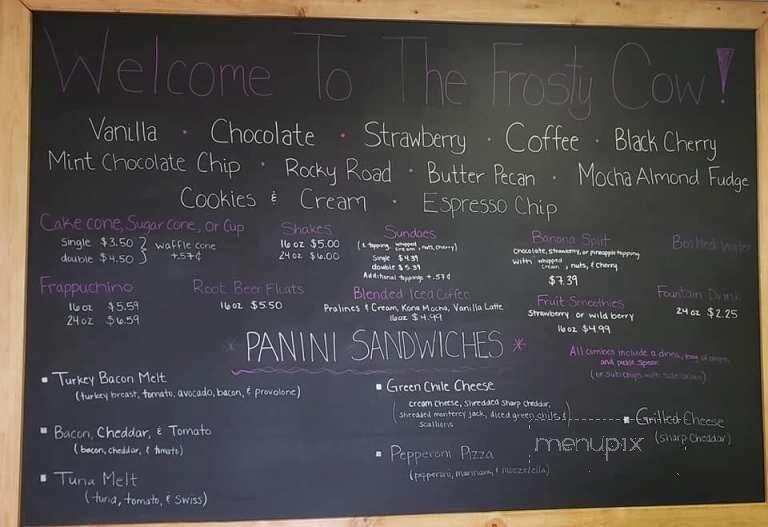 Welcome To The Frosty Cow!
Vanilla · Chocolate · Strawberry · Coffee · Black Cherry
Mint Chocolate Chip · Rocky Road · Butter Pecan · Mocha Almond Fudge
Cookies & Cream · Espresso Chip
Cake cone, Sugar cone, or Cup
Single $3.50
double $4.50
waffle cone
+.57¢
Shakes
16 oz $5.00
24 oz $6.00
Sundaes
(1 topping, whipped cream, nuts, cherry)
Single $4.39
double $5.39
Additional toppings +.57¢
Banana Split
chocolate, strawberry, or pineapple topping
with whipped cream, nuts, & cherry
$7.39
Bottled Water
Frappuchino
16 oz $5.59
24 oz $6.59
Root Beer Floats
16 oz $5.50
Blended Iced Coffee
Pralines & Cream, Kona Mocha, Vanilla Latte
16 oz $4.99
Fruit Smoothies
Strawberry or wild berry
16 oz $4.99
Fountain Drink
24 oz $2.25
* PANINI SANDWICHES *
All combos include a drink, bag of chips,
and pickle spear
(or sub chips with side salad)
▪ Turkey Bacon Melt
(turkey breast, tomato, avocado, bacon, & provolone)
▪ Bacon, Cheddar, & Tomato
(bacon, cheddar, & tomato)
▪ Tuna Melt
(tuna, tomato, & Swiss)
▪ Green Chile Cheese
(cream cheese, shredded sharp cheddar,
shredded monterey jack, diced green chile, &
scallions)
▪ Pepperoni Pizza
(pepperoni, marinara, & mozzarella)
▪ Grilled Cheese
(sharp cheddar)
menupix